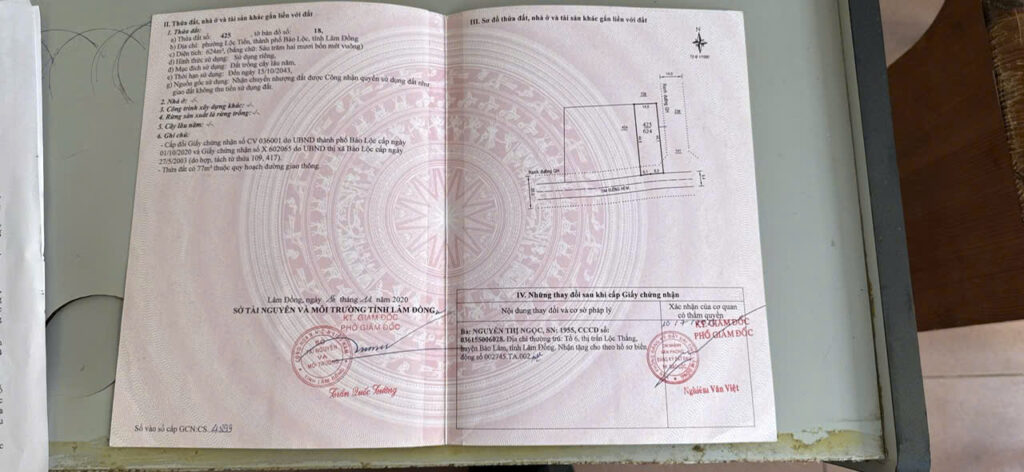 II. Thửa đất, nhà ở và tài sản khác gắn liền với đất
1. Thửa đất:
a) Thửa đất số: 425 tờ bản đồ số: 18,
b) Địa chỉ: phường Lộc Tiến, thành phố Bảo Lộc, tỉnh Lâm Đồng
c) Diện tích: 624m², (bằng chữ: Sáu trăm hai mươi bốn mét vuông)
d) Hình thức sử dụng: Sử dụng riêng,
đ) Mục đích sử dụng: Đất trồng cây lâu năm,
e) Thời hạn sử dụng: Đến ngày 15/10/2043,
g) Nguồn gốc sử dụng: Nhận chuyển nhượng đất được Công nhận quyền sử dụng đất như
giao đất không thu tiền sử dụng đất.
2. Nhà ở: -/-
3. Công trình xây dựng khác: -/-
4. Rừng sản xuất là rừng trồng: -/-
5. Cây lâu năm: -/-
6. Ghi chú:
- Cấp đổi Giấy chứng nhận số CV 036001 do UBND thành phố Bảo Lộc cấp ngày
01/10/2020 và Giấy chứng nhận số X 602065 do UBND thị xã Bảo Lộc cấp ngày
27/5/2003 (do hợp, tách từ thửa 109, 417).
- Thửa đất có 77m² thuộc quy hoạch đường giao thông.
Lâm Đồng, ngày tháng năm 2020
SỞ TÀI NGUYÊN VÀ MÔI TRƯỜNG TỈNH LÂM ĐỒNG
KT. GIÁM ĐỐC
PHÓ GIÁM ĐỐC
Trần Quốc Trường
Số vào sổ cấp GCN:CS
III. Sơ đồ thửa đất, nhà ở và tài sản khác gắn liền với đất
N
425
624
Ranh đường QH
Ranh đường QH
TIM ĐƯỜNG HẺM
IV. Những thay đổi sau khi cấp Giấy chứng nhận
Nội dung thay đổi và cơ sở pháp lý
Xác nhận của cơ quan
có thẩm quyền
Bà: NGUYỄN THỊ NGỌC, SN: 1955, CCCD số:
036155006028. Địa chỉ thường trú: Tổ 6, thị trấn Lộc Thắng,
huyện Bảo Lâm, tỉnh Lâm Đồng. Nhận tặng cho theo hồ sơ biến
động số 002745.TA.002
GIÁM ĐỐC
PHÓ GIÁM ĐỐC
Nghiêm Văn Việt